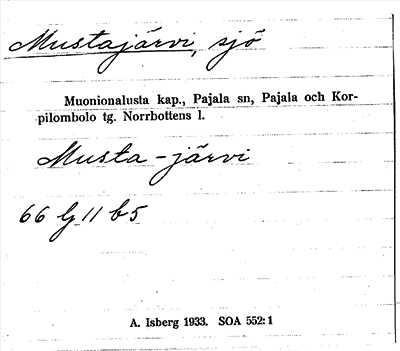 Mustajärvi, sjö
Muonionalusta kap., Pajala sn, Pajala och Kor-
pilombolo tg. Norrbottens l.
Musta-järvi
66 G 11 b5
A. Isberg 1933. SOA 552:1